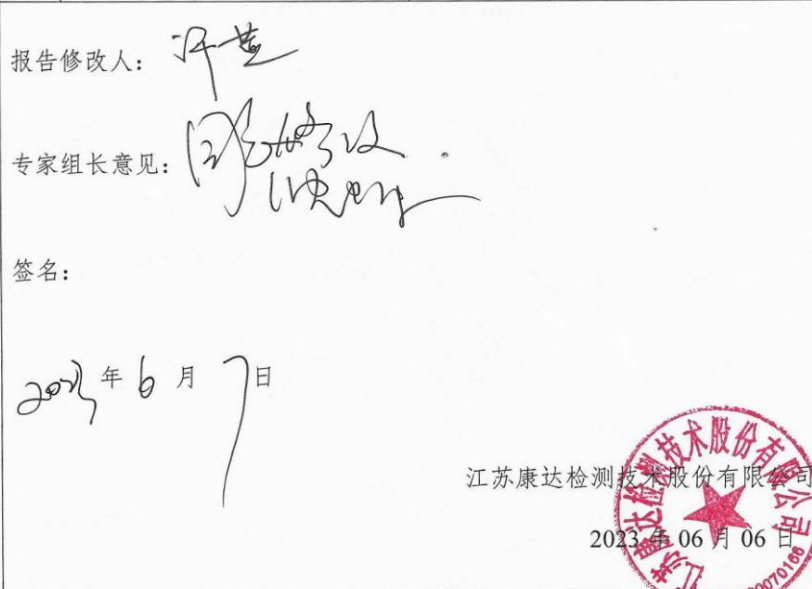 报告修改人：
专家组长意见：同意修改
签名：
2023年6月7日
江苏康达检测技术股份有限公司
2023年06月06日
江苏康达检测技术股份有限公司